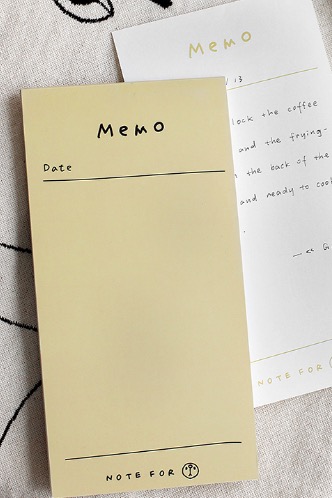 Memo
Date
NOTE FOR
Memo
13
lock the coffee
and the frying
the back of the
and ready to cook
NOTE FOR